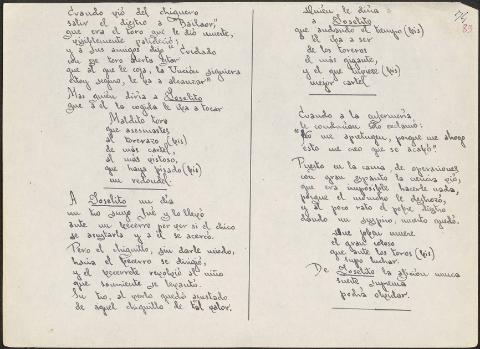 Cuando vió del chiquero
salir el diestro a "Bailaor",
que era el toro que le dió muerte,
visiblemente palideció;
y a sus amigos dijo "Cuidado
en ese toro alerta estar
que al que le coja, la Unción siquiera
estoy seguro, le va a alcanzar"
Mas quien diría a Joselito
que a él la cogida le iba a tocar
Maldito toro
que asesinastes
al torerazo (bis)
de más cartel,
al más vistoso,
que haya pisado (bis)
un redondel.
A Joselito un día
un tío suyo fué y lo llevó
ante un becerro por ver si el chico
se asustaba y a él se acercó.
Pero el chiquillo, sin darle miedo,
hacia el becerro se dirigió,
y el becerrote revolcó al niño
que sonriente se levantó.
Su tío, al verlo quedó asustado
de aquel chiquillo de tal valor.
Quien le diría
a Joselito
que andando el tiempo (bis)
él iba a ser
de los toreros
el más gigante,
y el que tuviese (bis)
mejor cartel.
Cuando a la enfermería
le conducían sólo exclamó:
"No me aprieguen, porque me ahogo
esto me creo que se acabó".
Puesto en la cama, de operaciones
con gran espanto la ciencia vió,
que era imposible hacerle nada,
porque el morucho le destrozó,
y al poco rato el pobre diestro
dando un suspiro, muerto quedó.
Que joven muere
el gran coloso
que ante los toros (bis)
supo luchar.
De Joselito la afición nunca
suerte suprema
podrá olvidar.